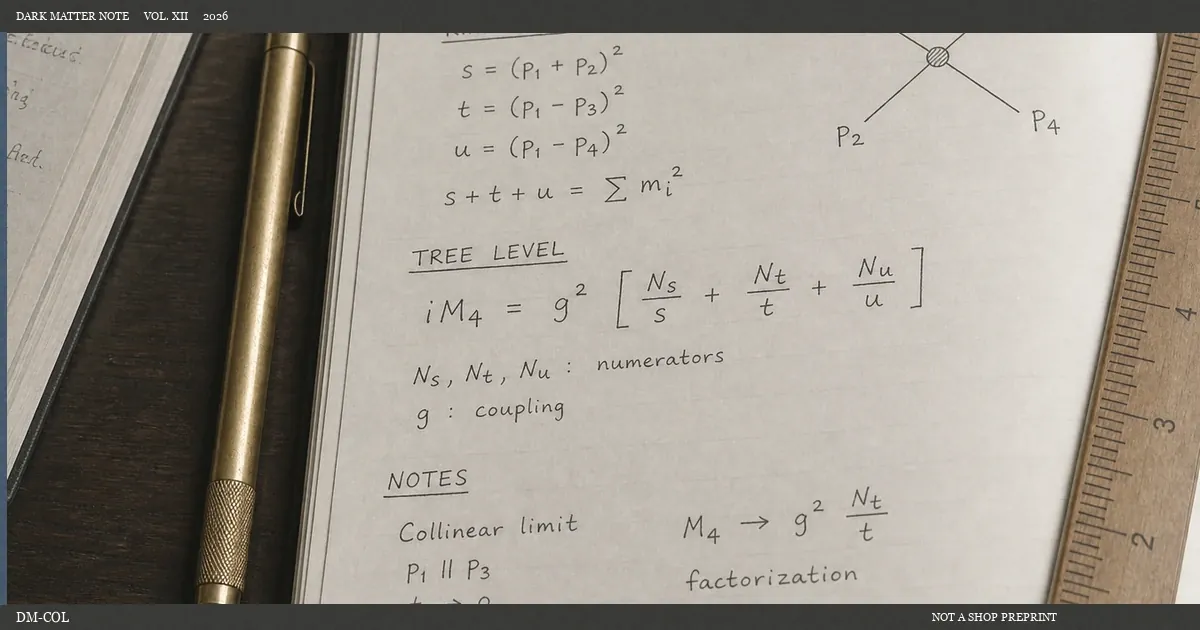 DARK MATTER NOTE VOL. XII 2026
s = (P₁ + P₂)²
t = (P₁ − P₃)²
u = (P₁ − P₄)²
s + t + u = ∑ mᵢ²
P₂
P₄
TREE LEVEL
iM₄ = g² [ Nₛ/s + Nₜ/t + Nᵤ/u ]
Nₛ, Nₜ, Nᵤ : numerators
g : coupling
NOTES
Collinear limit
P₁ || P₃
M₄ → g² Nₜ/t
factorization
4
3
2
DM-COL
NOT A SHOP PREPRINT